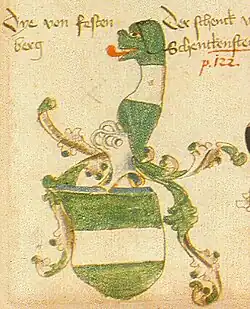 Dye von festen
berg
Der schenck v
Schenckenste
p. 122.